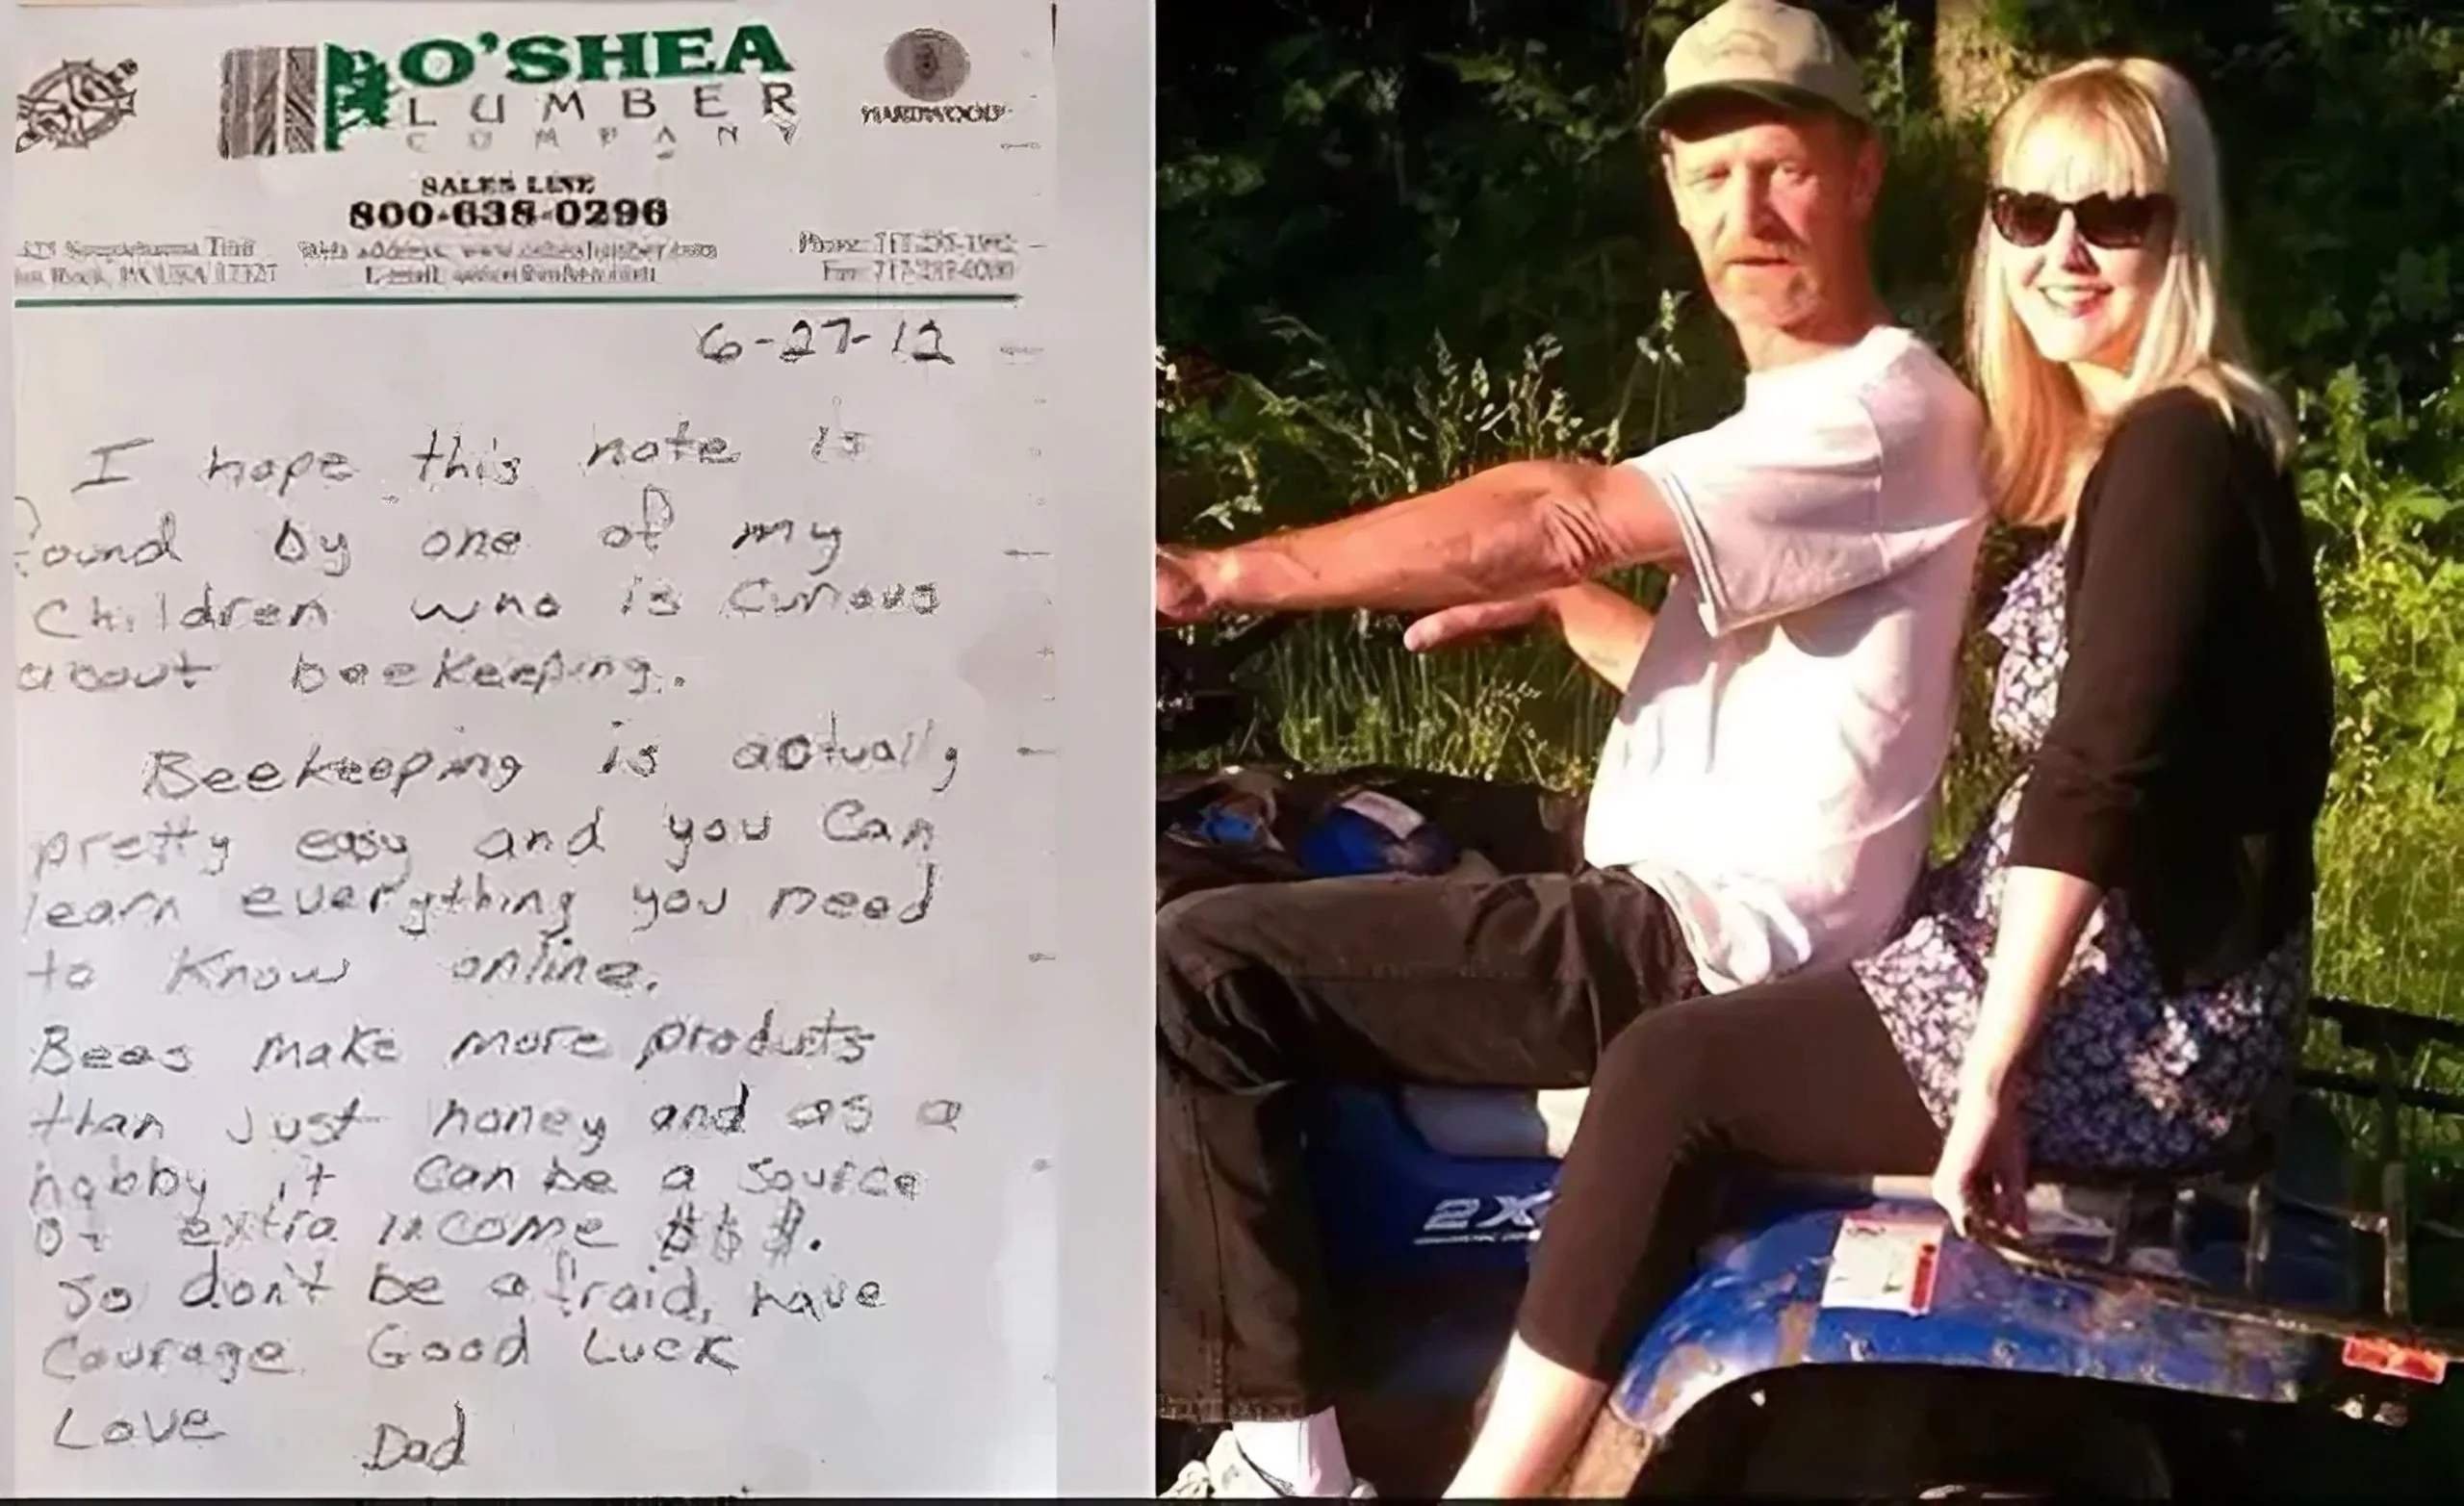 O'SHEA
LUMBER
COMPANY
HARDWOOD
SALES LINE
800-638-0296
6-27-12
I hope this note is
found by one of my
Children who is Curious
about beekeeping.
Beekeeping is actually
pretty easy and you Can
learn everything you need
to Know online.
Bees make more products
than Just honey and as a
hobby it Can be a source
of extra income $$$.
So don't be afraid, have
Courage Good Luck
Love Dad
2X